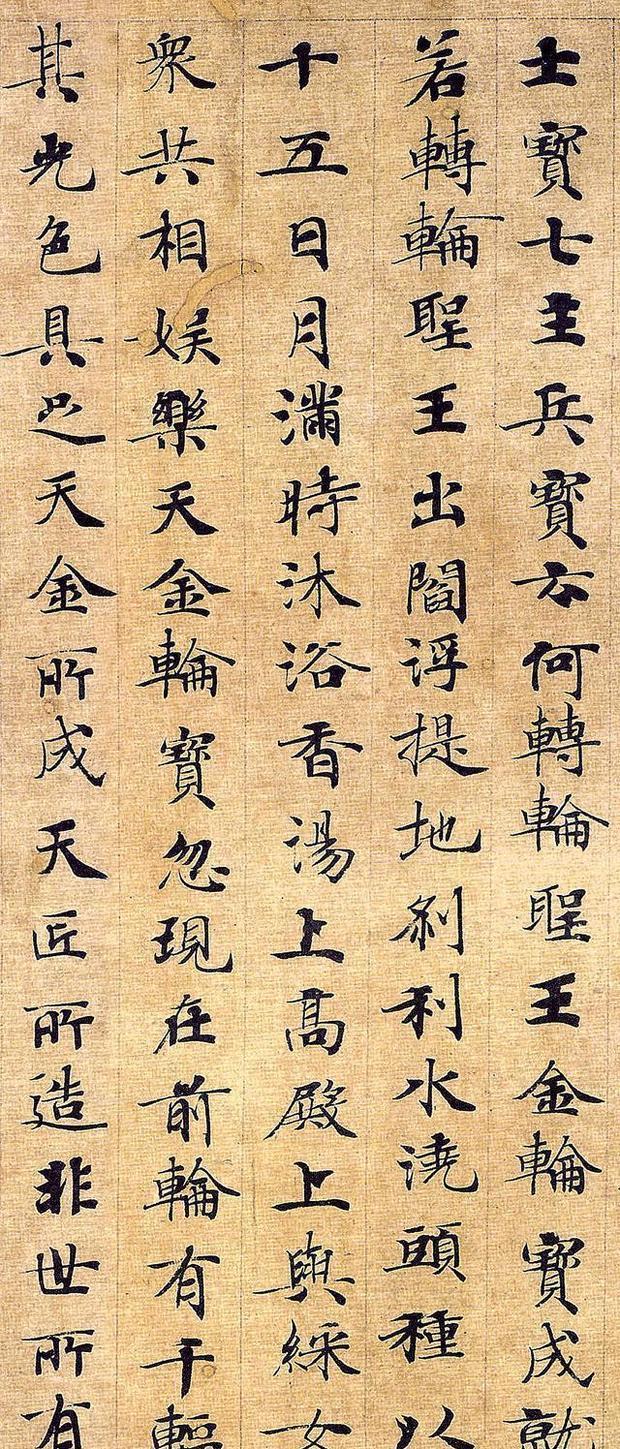 士寶七主兵寶云何轉輪聖王金輪寶成就
若轉輪聖王出閻浮提地刹利水澆頭種以
十五日月滿時沐浴香湯上高殿上與綵女
衆共相娛樂天金輪寶忽現在前輪有千輻
其光色具足天金所成天匠所造非世所有